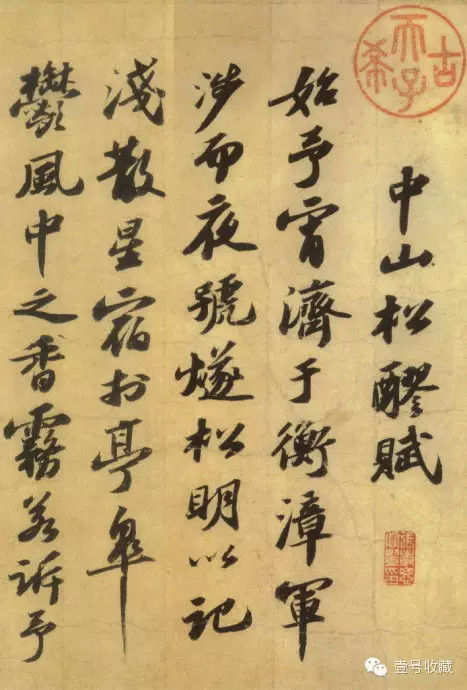 古希天子
中山松醪賦
始予宵濟于衡漳軍
涉而夜號燧松明以記
淺散星宿於亭皋
鬱風中之香霧若訴予
壹号收藏